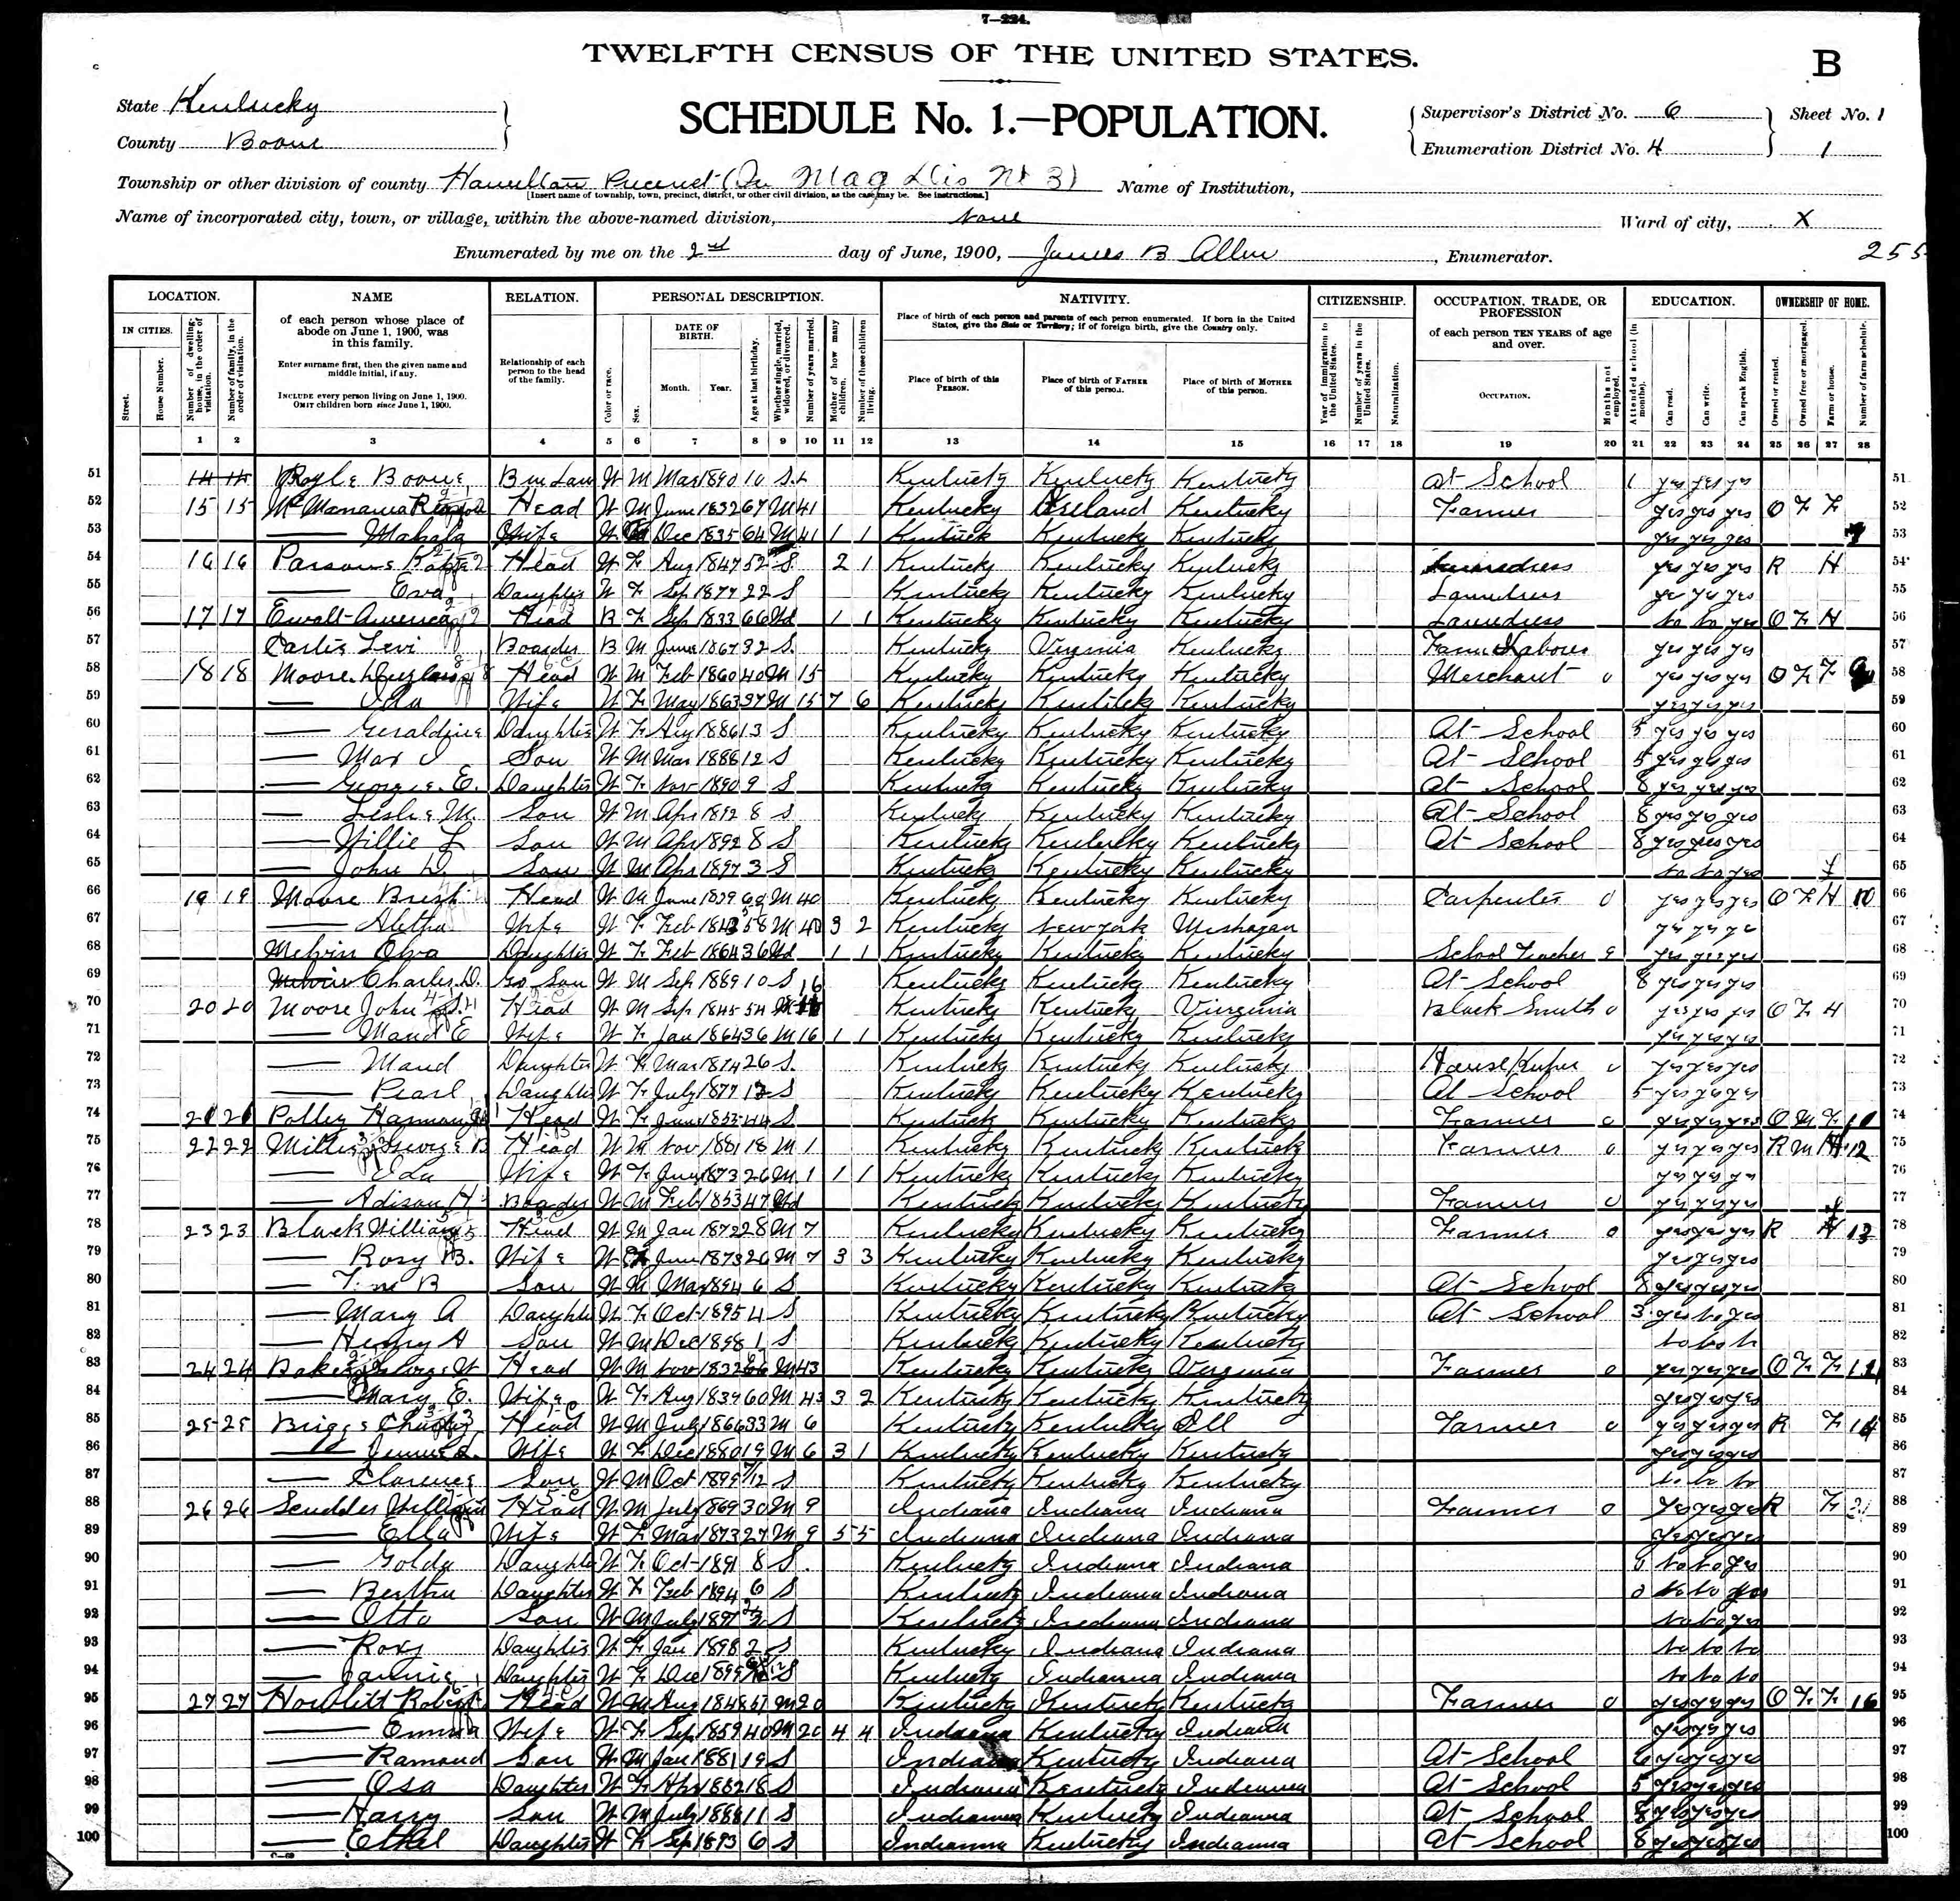 7—224.
TWELFTH CENSUS OF THE UNITED STATES.
B
State Kentucky
County Boone
SCHEDULE No. 1.—POPULATION.
Supervisor's District No. 6 Sheet No. 1
Enumeration District No. 4 1
Township or other division of county Hamilton Precinct (Mag Dis No 3) Name of Institution,
[Insert name of township, town, precinct, district, or other civil division, as the case may be. See instructions.]
Name of incorporated city, town, or village, within the above-named division, None Ward of city, X
Enumerated by me on the 2nd day of June, 1900, James B Allen, Enumerator.
255
LOCATION. NAME RELATION. PERSONAL DESCRIPTION. NATIVITY. CITIZENSHIP. OCCUPATION, TRADE, OR PROFESSION EDUCATION. OWNERSHIP OF HOME.
IN CITIES. Street. House Number. Number of dwelling-house, in the order of visitation. Number of family, in the order of visitation.
of each person whose place of abode on June 1, 1900, was in this family.
Enter surname first, then the given name and middle initial, if any.
INCLUDE every person living on June 1, 1900. OMIT children born since June 1, 1900.
Relationship of each person to the head of the family.
Color or race. Sex. DATE OF BIRTH. Month. Year. Age at last birthday. Whether single, married, widowed, or divorced. Number of years married. Mother of how many children. Number of these children living.
Place of birth of each person and parents of each person enumerated. If born in the United States, give the State or Territory; if of foreign birth, give the Country only.
Place of birth of this PERSON. Place of birth of FATHER of this person. Place of birth of MOTHER of this person.
Year of immigration to the United States. Number of years in the United States. Naturalization.
of each person TEN YEARS of age and over.
OCCUPATION. Months not employed.
Attended school (in months). Can read. Can write. Can speak English.
Owned or rented. Owned free or mortgaged. Farm or house. Number of farm schedule.
1 2 3 4 5 6 7 8 9 10 11 12 13 14 15 16 17 18 19 20 21 22 23 24 25 26 27 28
51 14 14 Boone W M Mar 1890 10 S Kentucky Kentucky Kentucky At School 1 yes yes yes 51
52 15 15 Head W M June 1832 67 M 41 Kentucky Ireland Kentucky Farmer yes yes yes O F F 52
53 — Mahala Wife W Dec 1835 64 M 41 1 1 Kentucky Kentucky Kentucky yes yes yes 53
54 16 16 Parsons Head W F Aug 1847 52 S 2 1 Kentucky Kentucky Kentucky yes yes yes R H 54
55 — Eva Daughter W F Sep 1877 22 S Kentucky Kentucky Kentucky Laundress yes yes yes 55
56 17 17 Ewalt America Head B F Sep 1833 66 Wd 1 1 Kentucky Kentucky Kentucky Laundress no no yes O F H 56
57 Levi Boarder B M June 1867 32 S Kentucky Virginia Kentucky Farm Labourer yes yes yes 57
58 18 18 Moore Douglass Head W M Feb 1860 40 M 15 Kentucky Kentucky Kentucky Merchant 0 yes yes yes O F F 9 58
59 — Wife W F May 1863 37 M 15 7 6 Kentucky Kentucky Kentucky yes yes yes 59
60 — Geraldine Daughter W F Aug 1886 13 S Kentucky Kentucky Kentucky At School 5 yes yes yes 60
61 — Son W M Mar 1888 12 S Kentucky Kentucky Kentucky At School 5 yes yes yes 61
62 — Georgie E. Daughter W F Nov 1890 9 S Kentucky Kentucky Kentucky At School 8 yes yes yes 62
63 — Leslie M. Son W M Apr 1892 8 S Kentucky Kentucky Kentucky At School 8 yes yes yes 63
64 — Willie L Son W M Apr 1892 8 S Kentucky Kentucky Kentucky At School 8 yes yes yes 64
65 — John D. Son W M Apr 1897 3 S Kentucky Kentucky Kentucky no no yes 65
66 19 19 Moore Head W M June 1839 60 M 40 Kentucky Kentucky Kentucky Carpenter 0 yes yes yes O F H 10 66
67 — Aletha Wife W F Feb 58 M 40 3 2 Kentucky New York Mishagan yes yes yes 67
68 Melvin Daughter W F Feb 1864 36 Wd 1 1 Kentucky Kentucky Kentucky School Teacher yes yes yes 68
69 Melvin Charles D. Son W M Sep 1889 10 S Kentucky Kentucky Kentucky At School 8 yes yes yes 69
70 20 20 Moore John S. Head W M Sep 1845 54 M 16 Kentucky Kentucky Virginia Black Smith 0 yes yes yes O F H 70
71 — Maud E Wife W F Jan 1864 36 M 16 1 1 Kentucky Kentucky Kentucky yes yes yes 71
72 — Maud Daughter W F Mar 1874 26 S Kentucky Kentucky Kentucky House Keeper yes yes yes 72
73 — Pearl Daughter W F July 1877 S Kentucky Kentucky Kentucky At School 5 yes yes yes 73
74 21 21 Head W F June 1855 44 S Kentucky Kentucky Kentucky Farmer 0 yes yes yes O M F 11 74
75 22 22 Miller George B Head W M Nov 1881 18 M 1 Kentucky Kentucky Kentucky Farmer 0 yes yes yes R 12 75
76 — Eda Wife W F 1873 26 M 1 1 1 Kentucky Kentucky Kentucky yes yes yes 76
77 — Adison H Boarder W M Feb 1853 47 Wd Kentucky Kentucky Kentucky Farmer 0 yes yes yes 77
78 23 23 Black William Head W M Jan 1872 28 M 7 Kentucky Kentucky Kentucky Farmer 0 yes yes yes R 13 78
79 — Rosy B. Wife W F June 1873 26 M 7 3 3 Kentucky Kentucky Kentucky yes yes yes 79
80 — B Son W M May 1894 6 S Kentucky Kentucky Kentucky At School 8 yes yes yes 80
81 — Mary A Daughter W F Oct 1895 4 S Kentucky Kentucky Kentucky At School 3 yes no yes 81
82 — Henry H Son W M Dec 1898 1 S Kentucky Kentucky Kentucky no no n 82
83 24 24 Baker George W Head W M Nov 1832 66 M 43 Kentucky Kentucky Virginia Farmer 0 yes yes yes O F F 83
84 — Mary E. Wife W F Aug 1839 60 M 43 3 2 Kentucky Kentucky Kentucky yes yes yes 84
85 25 25 Briggs Head W M July 1866 33 M 6 Kentucky Kentucky Ill Farmer 0 yes yes yes R F 14 85
86 — Wife W F Dec 1880 19 M 6 3 1 Kentucky Kentucky Kentucky yes yes yes 86
87 — Clarence Son W M Oct 1899 7/12 S Kentucky Kentucky Kentucky no no no 87
88 26 26 Scudder William Head W M July 1869 30 M 9 Indiana Indiana Indiana Farmer 0 yes yes yes R F 88
89 — Ella Wife W F Mar 1873 27 M 9 5 5 Indiana Indiana Indiana yes yes yes 89
90 — Golda Daughter W F Oct 1891 8 S Kentucky Indiana Indiana 0 no no yes 90
91 — Bertha Daughter W F Feb 1894 6 S Kentucky Indiana Indiana 0 no no yes 91
92 — Otto Son W M July 1897 2 S Kentucky Indiana Indiana no no yes 92
93 — Roxy Daughter W F Jan 1898 2 S Kentucky Indiana Indiana no no no 93
94 — Daughter W F Dec 1899 S Kentucky Indianna Indiana no no no 94
95 27 27 Howlitt Robert Head W M Aug 1848 51 M 20 Kentucky Kentucky Kentucky Farmer 0 yes yes yes O F F 16 95
96 — Emma Wife W F Sep 1859 40 M 20 4 4 Indiana Kentucky Indiana yes yes yes 96
97 — Ramond Son W M Jan 1881 19 S Indiana Kentucky Indiana At School 6 yes yes yes 97
98 — Osa Daughter W F Apr 1882 18 S Indiana Kentucky Indianna At School 5 yes yes yes 98
99 — Harry Son W M July 1888 11 S Indianna Kentucky Indianna At School 8 yes yes yes 99
100 — Ethel Daughter W F Sep 1893 6 S Indianna Kentucky Indianna At School 8 yes yes yes 100